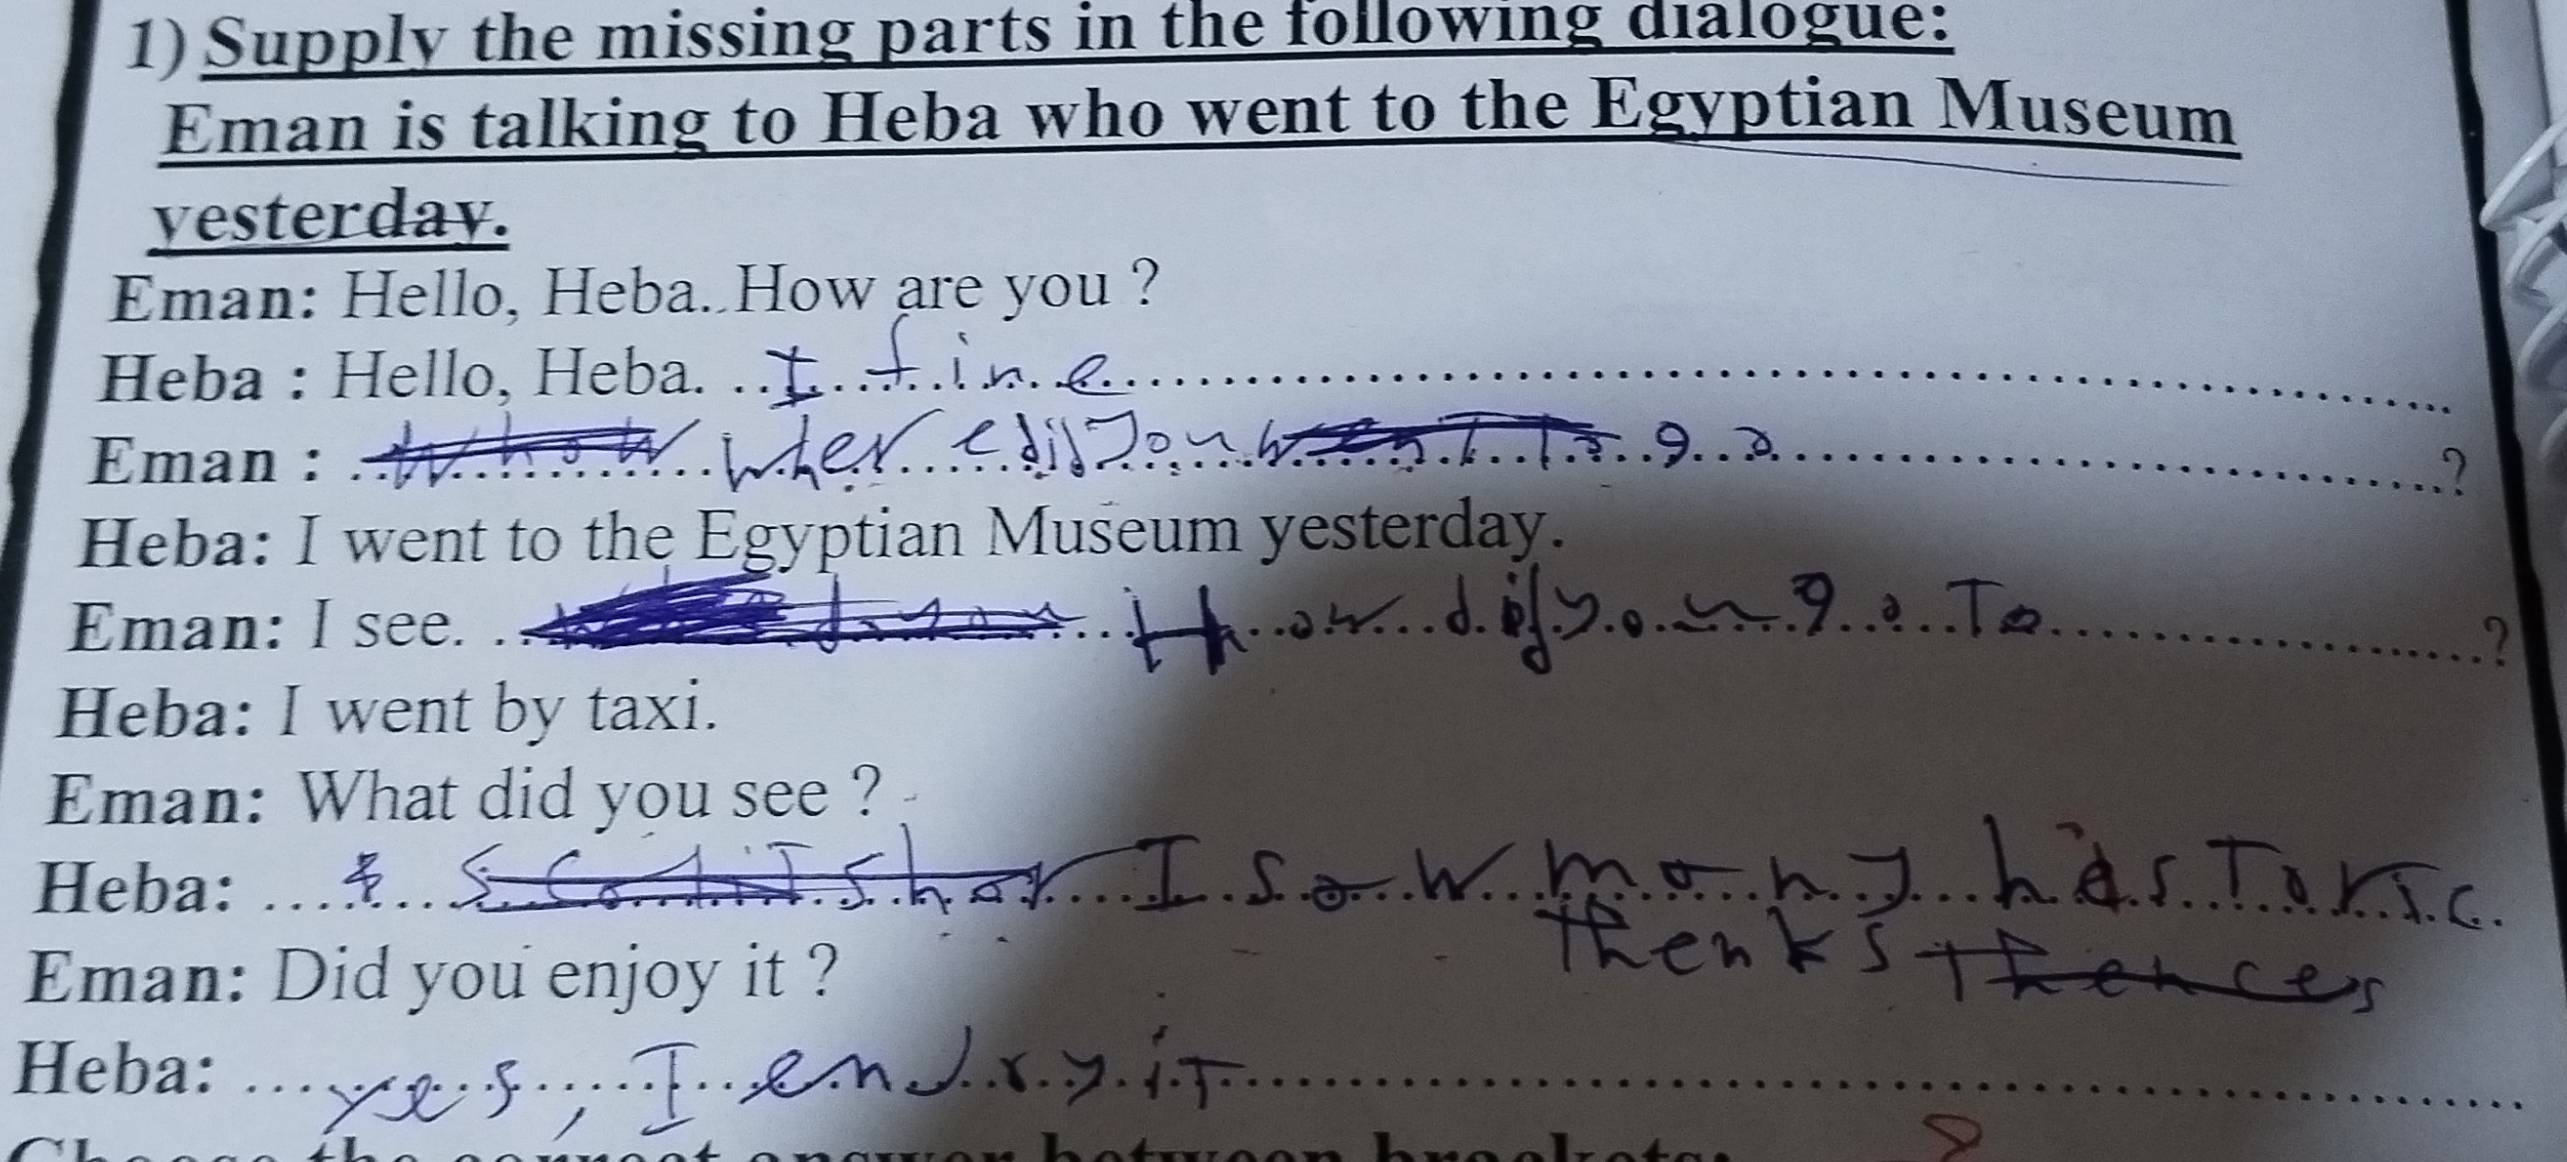 1) Supply the missing parts in the following dialogue:
Eman is talking to Heba who went to the Egyptian Museum
yesterday.
Eman: Hello, Heba..How are you ?
Heba : Hello, Heba. ..I fine..........
Eman : ..........Wher e did you go..........?
Heba: I went to the Egyptian Museum yesterday.
Eman: I see. ..........How did you go To..........?
Heba: I went by taxi.
Eman: What did you see ?
Heba: ..........I sow mony hastoric.
thenks
Eman: Did you enjoy it ?
Heba: ....yes, I enjry it..........